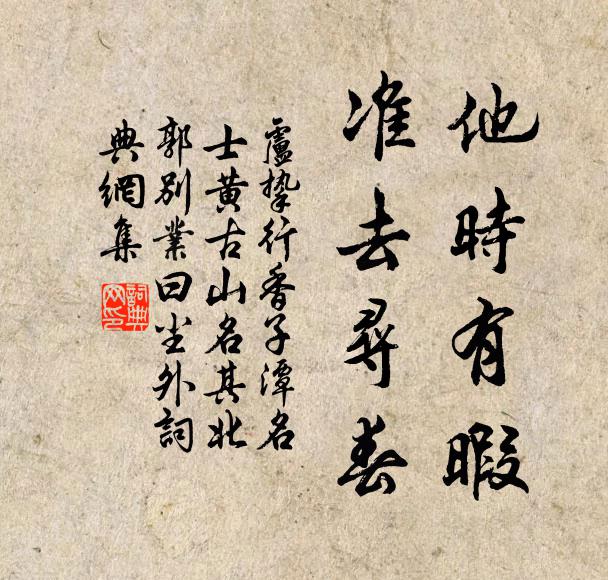 他時有暇
准去尋春
盧摯行香子潭名
士黄古山名其北
郭別業曰坐外詞
典網集
詞典網印